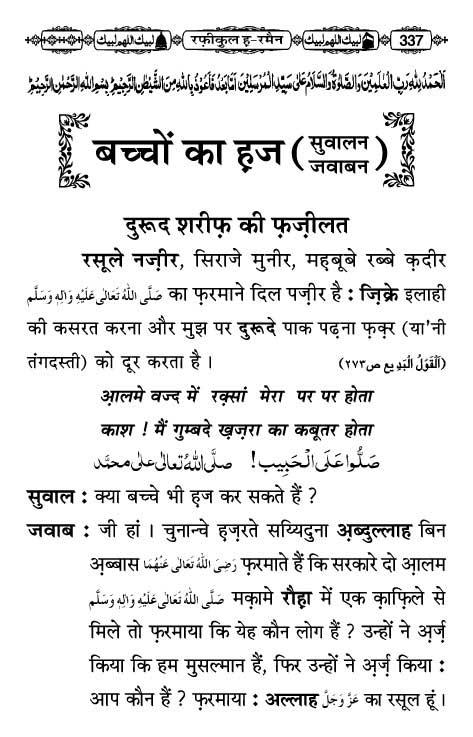 لبیك اللهم لبیك رफ़ीकुल ह-रमैन لبیك اللهم لبیك 337
اَلْحَمْدُ لِلّٰهِ رَبِّ الْعٰلَمِیْنَ وَالصَّلٰوةُ وَالسَّلَامُ عَلٰی سَیِّدِ الْمُرْسَلِیْنَ اَمَّا بَعْدُ فَاَعُوْذُ بِاللّٰهِ مِنَ الشَّیْطٰنِ الرَّجِیْمِ بِسْمِ اللّٰهِ الرَّحْمٰنِ الرَّحِیْمِ
बच्चों का हज (सुवालन जवाबन)
दुरूद शरीफ़ की फ़ज़ीलत
रसूले नज़ीर, सिराजे मुनीर, महबूबे रब्बे क़दीर
صَلَّی اللّٰهُ تَعَالٰی عَلَیْهِ وَاٰلِهٖ وَسَلَّم का फ़रमाने दिल पज़ीर है : ज़िक्रे इलाही
की कसरत करना और मुझ पर दुरूदे पाक पढ़ना फ़क़्र (या'नी
तंगदस्ती) को दूर करता है । (اَلْقَوْلُ الْبَدِیع ص۲۷۳)
आ़लमे वज्द में रक़्सां मेरा पर पर होता
काश ! मैं गुम्बदे ख़ज़रा का कबूतर होता
صَلُّوا عَلَی الْحَبِیب! صلَّی اللّٰهُ تعالٰی علٰی محمَّد
सुवाल : क्या बच्चे भी हज कर सकते हैं ?
जवाब : जी हां । चुनान्चे हज़रते सय्यिदुना अ़ब्दुल्लाह बिन
अ़ब्बास رَضِیَ اللّٰهُ تَعَالٰی عَنْهُمَا फ़रमाते हैं कि सरकारे दो आ़लम
صَلَّی اللّٰهُ تَعَالٰی عَلَیْهِ وَاٰلِهٖ وَسَلَّم मक़ामे रौह़ा में एक क़ाफ़िले से
मिले तो फ़रमाया कि येह कौन लोग हैं ? उन्हों ने अ़र्ज़
किया कि हम मुसल्मान हैं, फिर उन्हों ने अ़र्ज़ किया :
आप कौन हैं ? फ़रमाया : अल्लाह عَزَّ وَجَلَّ का रसूल हूं ।